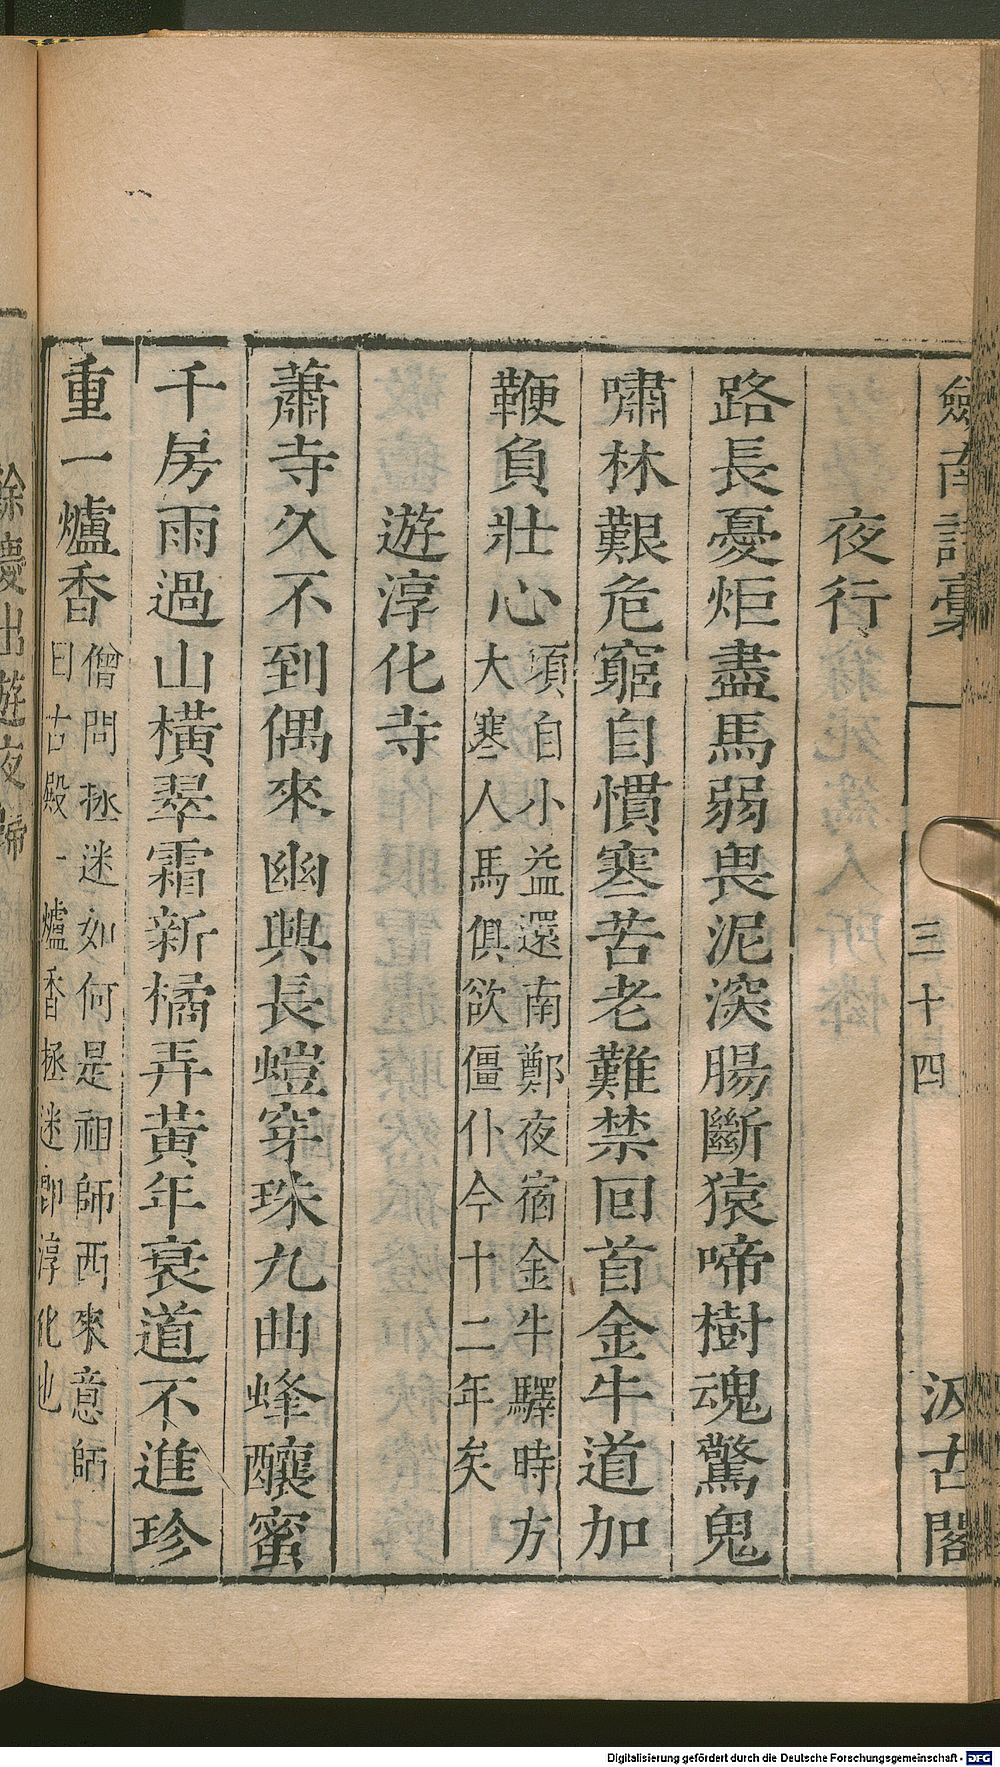 劍南詩稾 三十四 汲古閣
夜行
路長憂炬盡馬弱畏泥深腸斷猿啼樹魂驚鬼
嘯林艱危窮自慣寒苦老難禁回首金牛道加
鞭負壯心
頃自小益還南鄭夜宿金牛驛時方
大寒人馬俱欲僵仆今十二年矣
遊淳化寺
蕭寺久不到偶來幽興長螘穿珠九曲蜂釀蜜
千房雨過山橫翠霜新橘弄黃年衰道不進珍
重一爐香
僧問拯迷如何是祖師西來意師
曰古殿一爐香拯迷卽淳化也
Digitalisierung gefördert durch die Deutsche Forschungsgemeinschaft - DFG